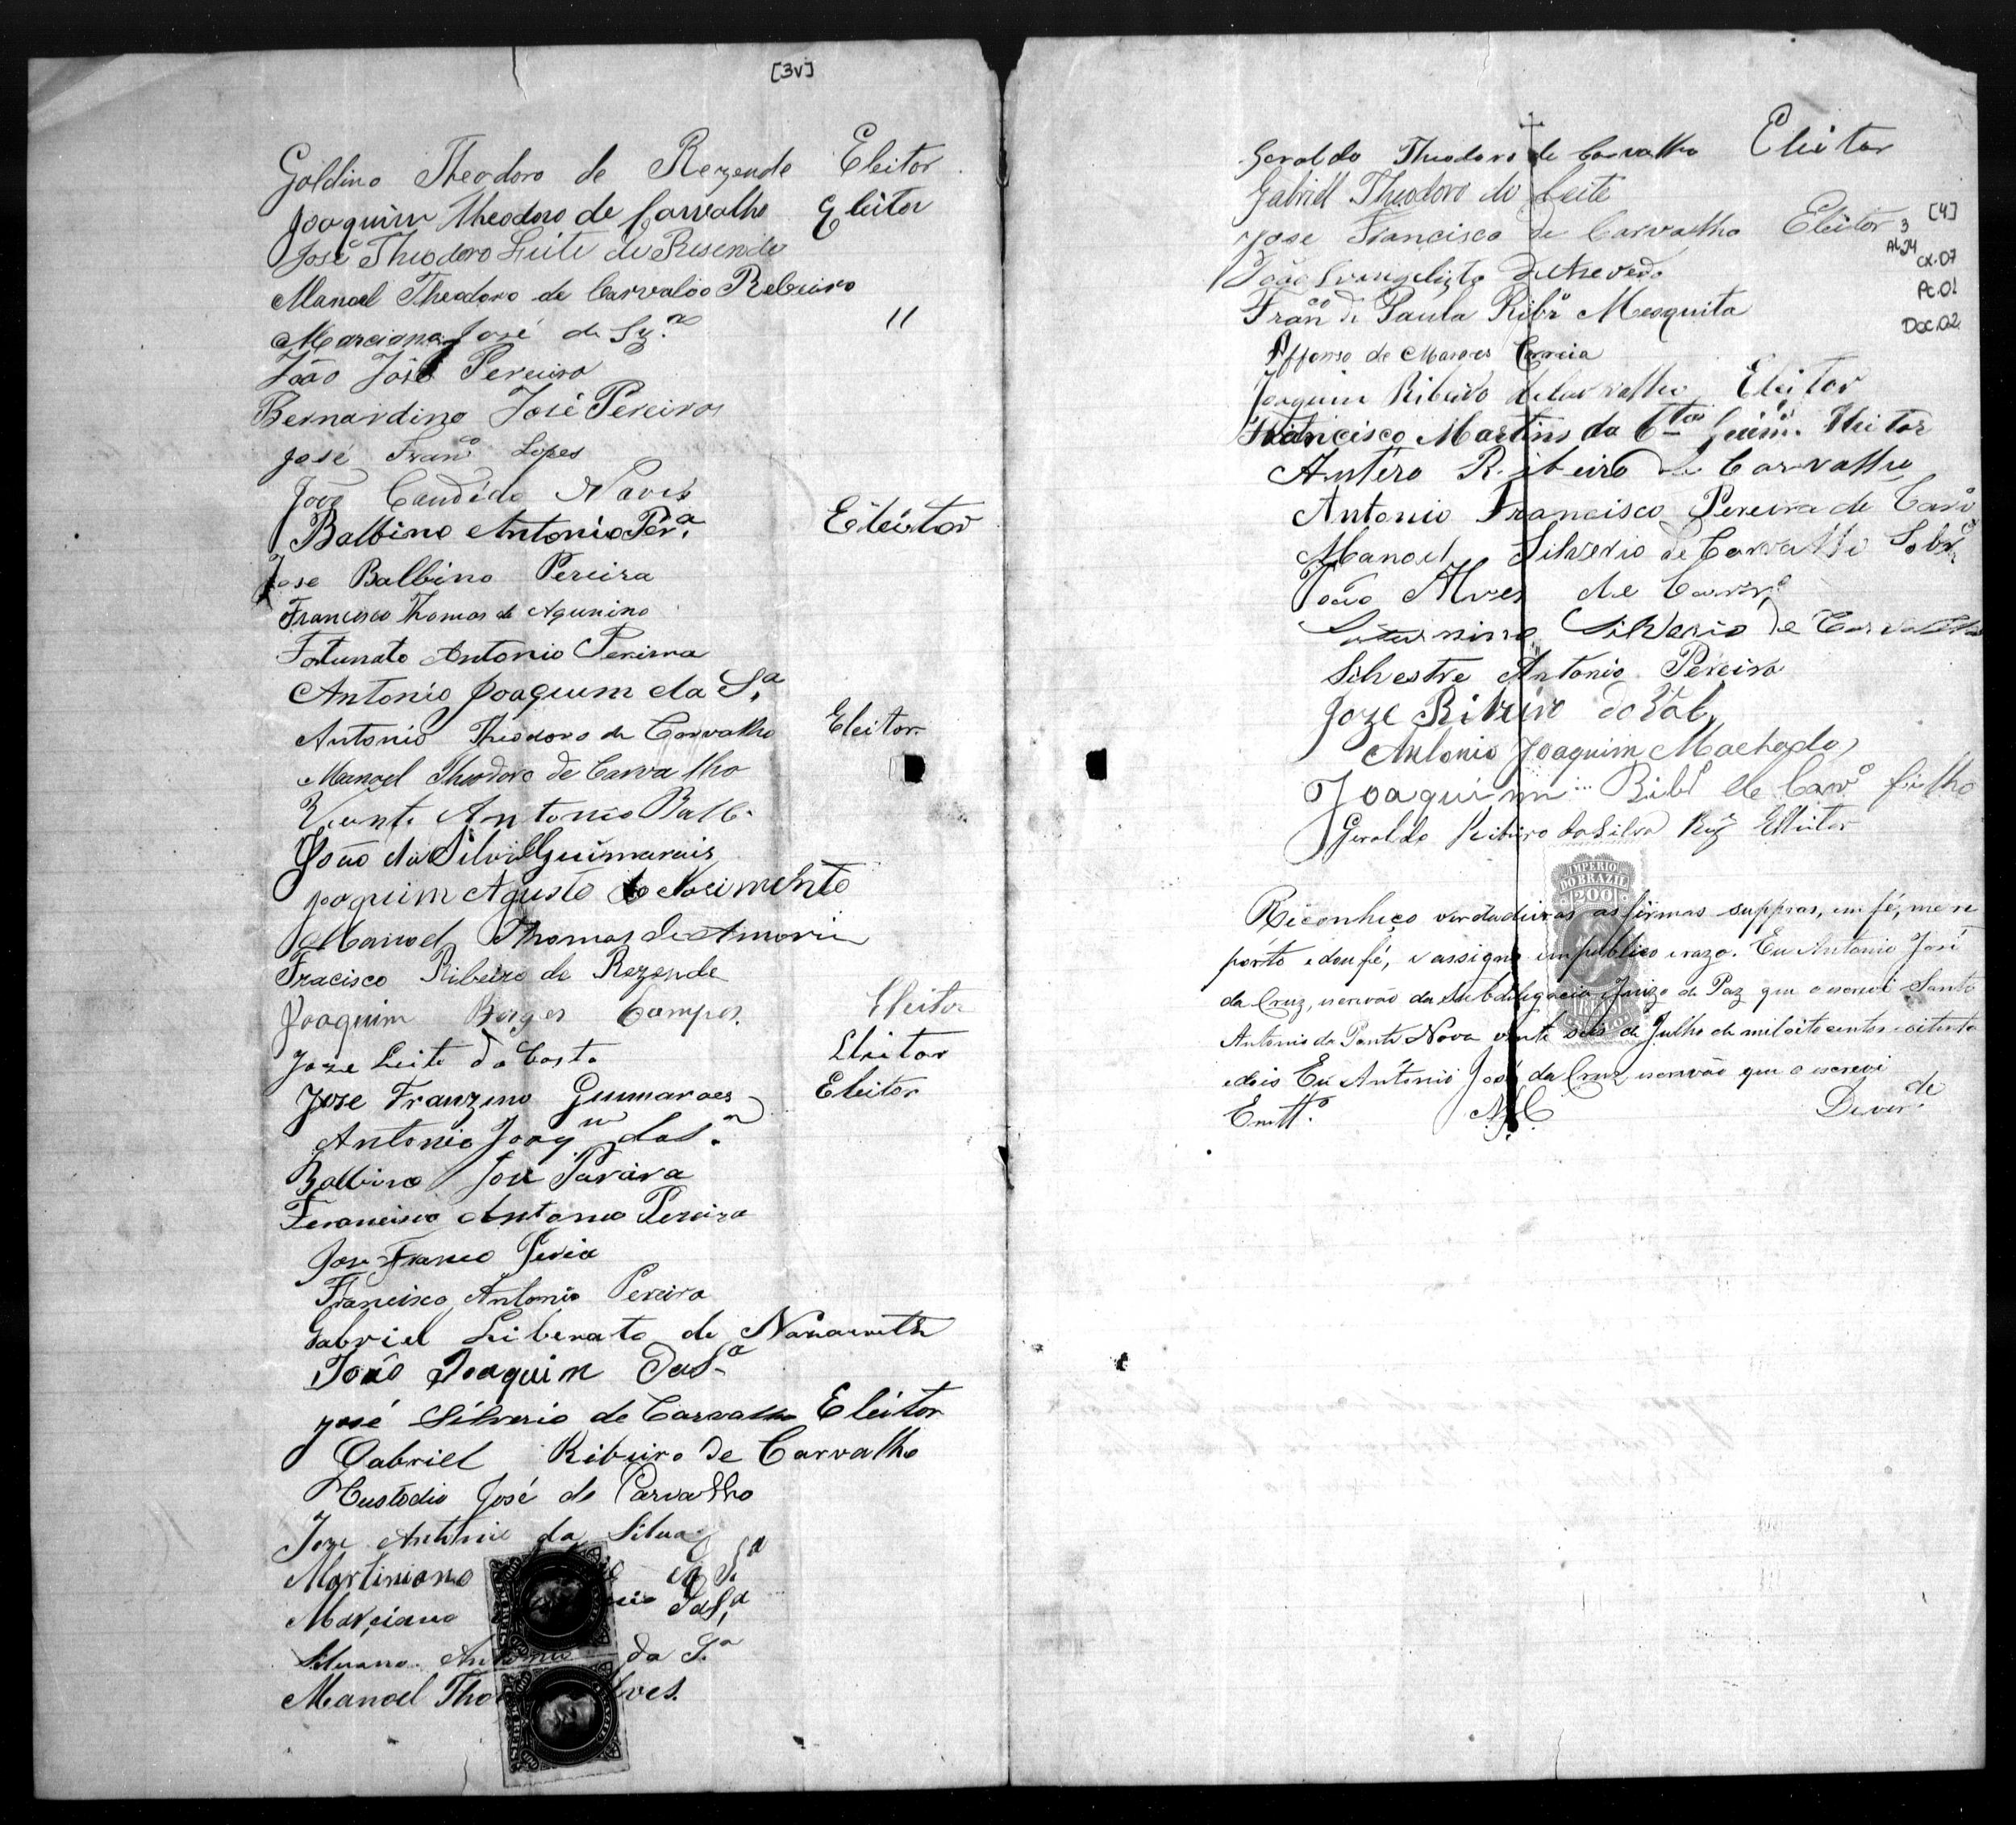 [3v]
Goldino Theodoro de Rezende Eleitor
Joaquim Theodoro de Carvalho Eleitor
José Theodoro Leite de Resende
Manoel Theodoro de Carvalho Rebeiro
Marciana José da Sª "
João José Pereira
Bernardino José Pereira
José Franᶜᵒ Lopes
João Candido Naves
Balbino Antonio Perª Eleitor
Jose Balbino Pereira
Francisco Thomas de Aqunino
Fortunato Antonio Perirra
Antonio Joaquim da Sª
Antonio Theodoro de Carvalho Eleitor
Manoel Theodoro de Carvalho
Antonio Balb.
João da Silva Guimarais
Joaquim Agusto do Nacimento
Manoel Thomas de Amorin
Fracisco Ribeiro de Rezende
Joaquim Borges Campos Eleitor
Joze Leite da Costa Eleitor
Jose Guimaraes Eleitor
Antonio Joaqᵐ da Sª
Balbino José Parăira
Antonio Pereira
Jose Franco
Francisco Antonio Pereira
Gabriel Liberato de Nazareth
João Joaquim da Sª
José Silverio de Carvalho Eleitor
Gabriel Ribeiro de Carvalho
Custodio José de Carvalho
Joze Antonio da Silva
Martiniano da Sª
Marciano da Sª
Silvano Antonio da Sª
Manoel Tho lves.
Geraldo Theodoro de Carvalho Eleitor
Gabriel Theodoro do Leite
José Francisco de Carvalho Eleitor
3 [4]
cx.07
Pt.01
Doc.02
João Evangelista de Azevedo
Franᶜᵒ de Paula Ribrº Mesquita
Affonso de Moraes Correia
Joaquim Ribeiro de Carvalho Eleitor
Francisco Martins da Cᵗᵃ Guimᵉˢ Eleitor
Antero Ribeiro de Carvalho
Antonio Francisco Pereira de Carvº
Manoel Silverio de Carvalho Sobrº
João Alves de Carvº
Saturnino Silverio de Carvalho
Silvestre Antonio Pereira
Joze Ribeiro do Val
Antonio Joaquim Machado
Joaquim Ribº de Carvº filho
Geraldo Ribeiro da Silva Elleitor
IMPERIO
DO BRAZIL
200
REIS
Reconheço verdadeiras as firmas suppras, em fé, me re
pórto e dou fé, e assigno em publico e razo. Eu Antonio José
da Cruz, escrivão da Subdelegacia e Juizo de Paz que o escrevi Santo
Antonio da Ponte Nova vinte seis de Julho de mil oito centos e oitenta
e dois Eu Antonio José da Cruz escrivão que o escrevi
Em ttº A.J.C De verᵈᵉ